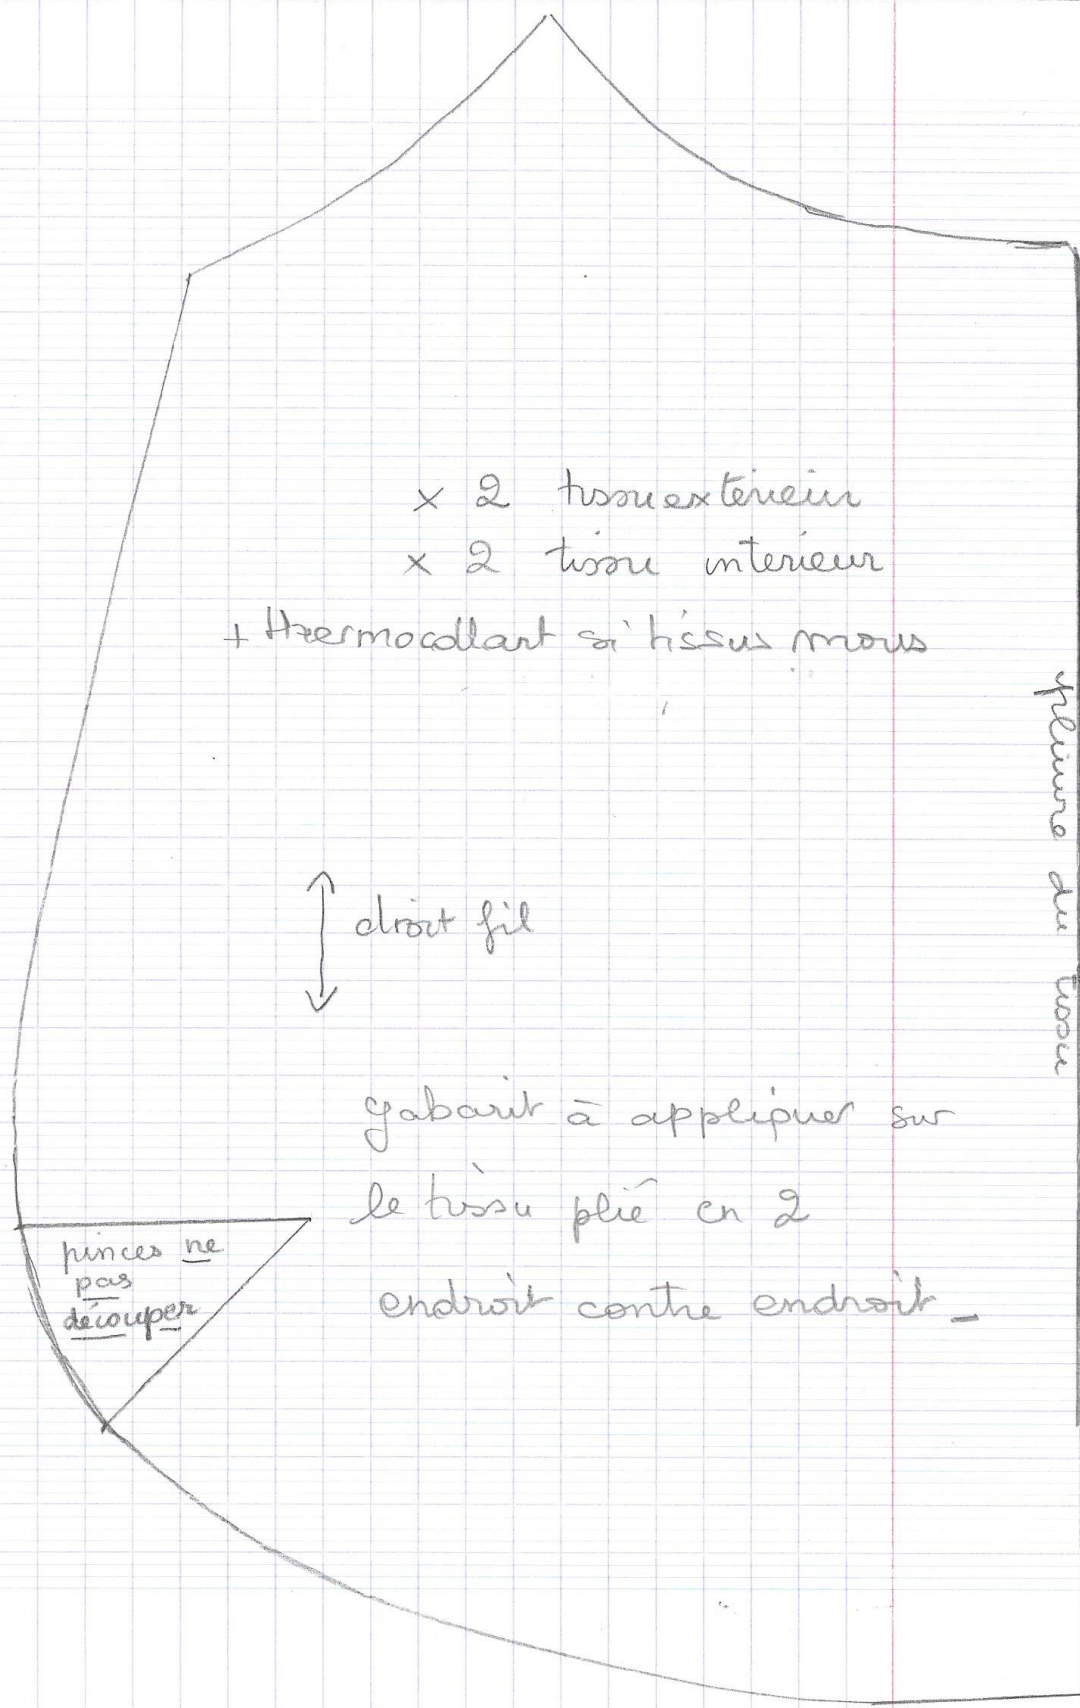 x 2 tissu extérieur
x 2 tissu interieur
+ thermocollant si tissus mous
pliure du tissu
droit fil
gabarit à appliquer sur
le tissu plié en 2
endroit contre endroit_
pinces ne
pas
découper